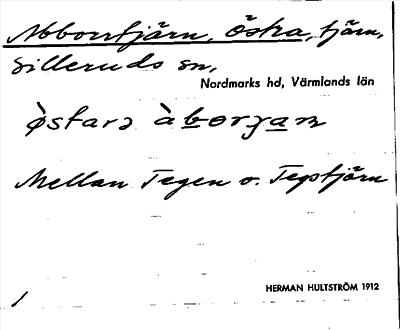 Abborrtjärn, Östra, tjärn,
Silleruds sn,
Nordmarks hd, Värmlands län
Mellan Tegen o. Tegstjärn
HERMAN HULTSTRÖM 1912
1